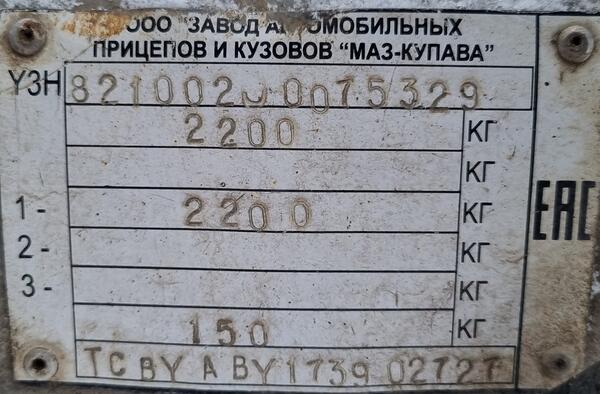 ООО "ЗАВОД АВТОМОБИЛЬНЫХ
ПРИЦЕПОВ И КУЗОВОВ "МАЗ-КУПАВА"
УЗН 82100200075329
2200 КГ
КГ
1- 2200 КГ
2- КГ
3- КГ
150 КГ
ТС BY A BY1739 02727
EAC